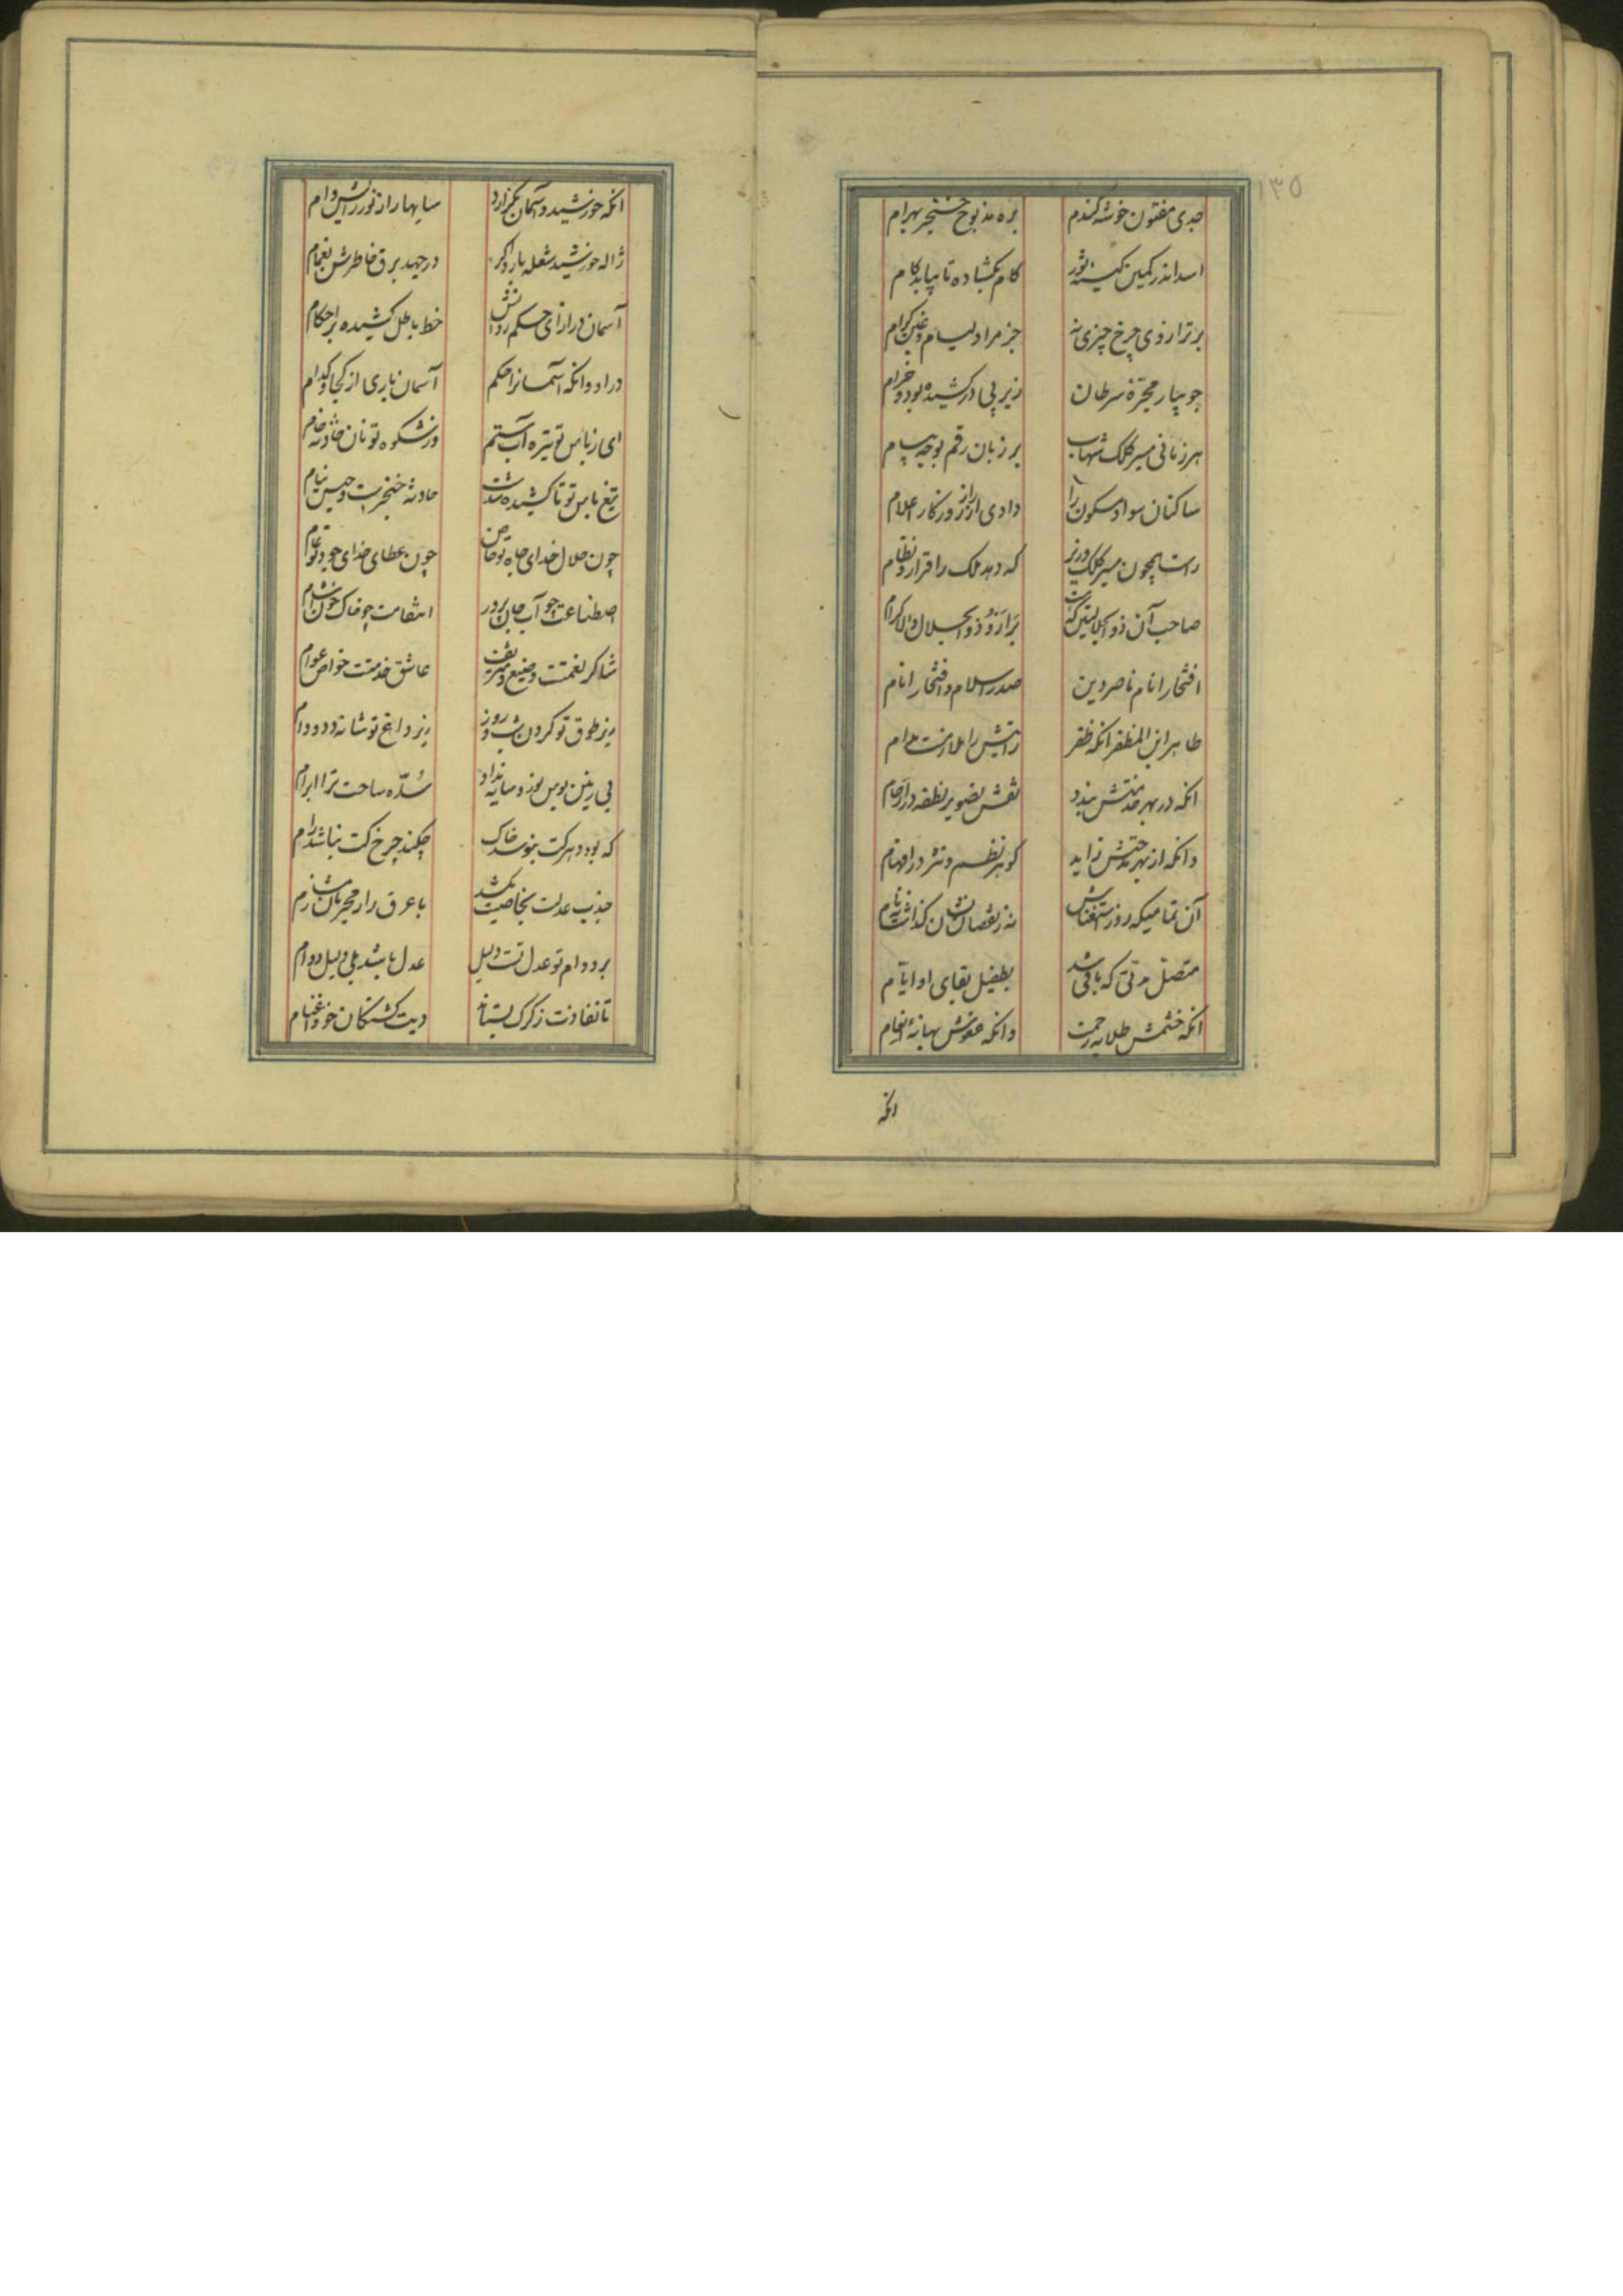 ۱۳۵
جدی مفتون خوشه گندم بره مذبوح خنجر بهرام
اسد اندر کمین کینه ثور کام بگشاده تا بیابد کام
بر ترازوی چرخ چیزی نه جز مراد لیام و غبن کرام
جویبار مجره سرطان زیر پی درکشیده بود و خرام
هر زمانی مسیر کلک شهاب بر زبان رقم بوجه پیام
ساکنان سواد مسکون را دادی از راز روزگار اعلام
راست همچون مسیر کلک وزیر که دهد ملک را قرار و نظام
صاحب آن ذوالجلالتین که نزاد برتر از وی ذوالجلال والاکرام
افتخار انام ناصر دین صدر اسلام و افتخار انام
طاهر ابن المظفر انکه ظفر رایتش را ملازمست مدام
انکه در بهر خدمتش بندد نقش تصویر نطفه در ارحام
وانکه از بهر مدحتش زاید گوهر نظم و نثر در افهام
آن تمامیکه روز استغناش نه ز نقصان نشان گذاشت نه نام
متصل مدتی که باقی شد بطفیل بقای او ایام
انکه خشمش طلایه رحمت وانکه عفوش بهانه انعام
انکه
انکه خورشید و آسمان بگزارد سایها را ز نور رایش وام
ژاله خورشید شعله بارد اگر درجهد برق خاطرش بغمام
آسمان در ازای حکم روانش خط باطل کشیده بر احکام
در ادوانکه آسمانرا حکم آسمان باری از کجا و کدام
ای ز باس تو تیره آب ستم وز شکوه تو نان حادثه خام
تیغ باس تو تا کشیده شدست حادثه خنجرست و حبس نیام
چون جلال خدای جاه تو خاص چون عطای خدای جود تو عام
اصطناعت چو آب جان پرور انتقامت چو خاک خون آشام
شاکر نعمتت وضیع و شریف عاشق خدمتت خواص و عوام
زیر طوق تو گردن شب و روز زیر داغ تو شانه دد و دام
بی زمین بوس نور و سایه نداد سده ساحت ترا ابرام
که بود دهر کت نبوسد خاک چکند چرخ کت نباشد رام
جذب عدلت بخاصیت بکشد با عرق راز مجرمان ز مشام
بر دوام تو عدل تست دلیل عدل باشد بلی دلیل دوام
تا نفاذت ز گرگ بستاند دیت کشتگان خود اغنام